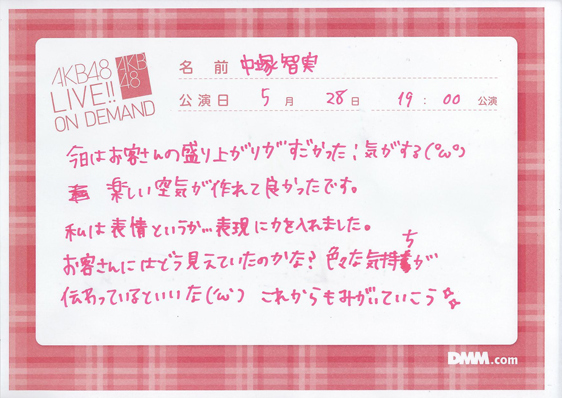 AKB48
LIVE!!
ON DEMAND
AKB
48
名 前 中塚智実
公演日 5月 28日 19:00 公演
今日はお客さんの盛り上がりがすごかった!気がする(°ω°)
楽しい空気が作れて良かったです。
私は表情というか…表現に力を入れました。
お客さんにはどう見えていたのかな?色々な気持ちが
伝わっているといいな(´ω`) これからもみがいていこう☆
DMM.com